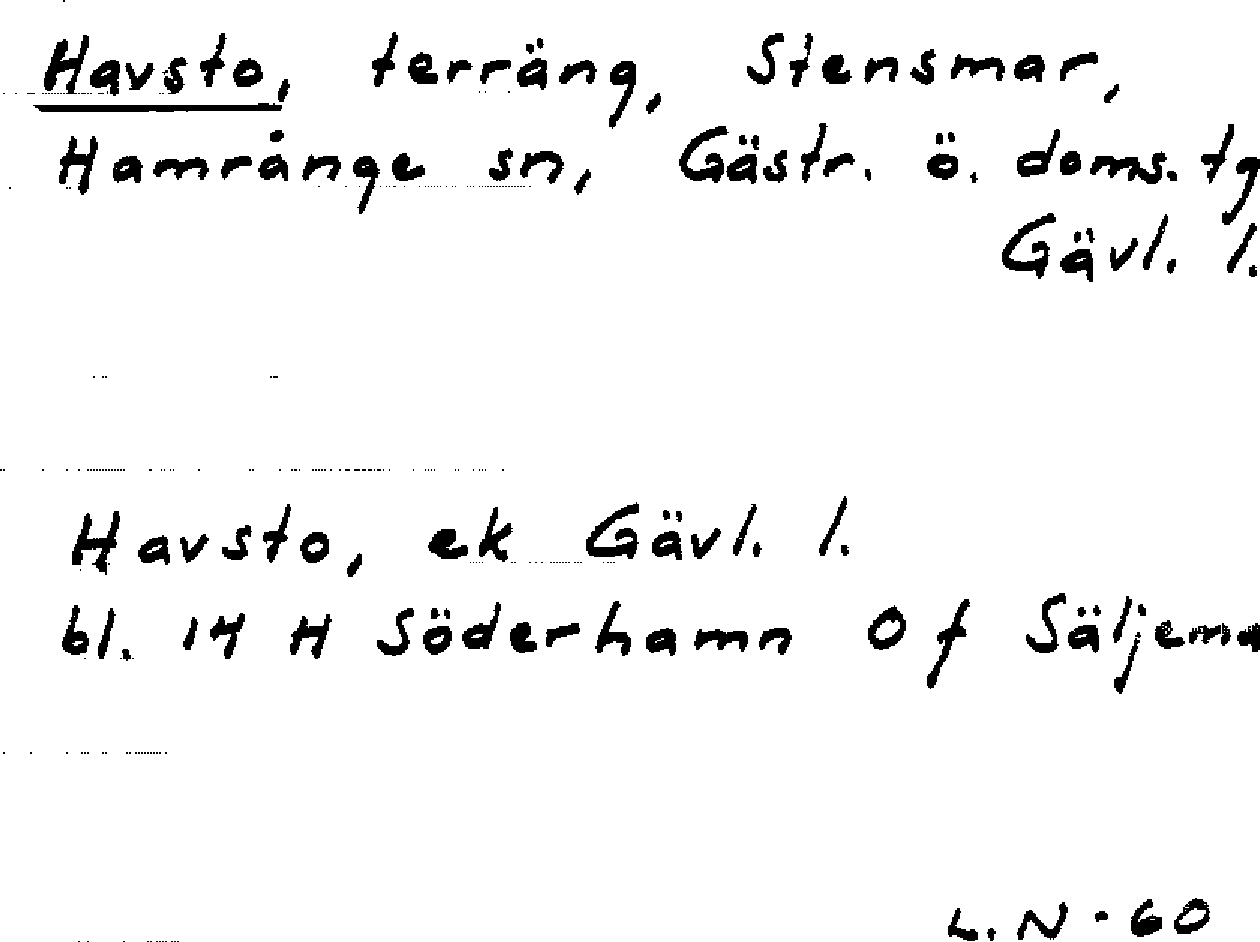 Havsto, terräng, Stensmar,
Hamrånge sn, Gästr. ö. doms. tg
Gävl. l.
Havsto, ek Gävl. l.
bl. 14 H Söderhamn 0 f Säljema
L. N - 60